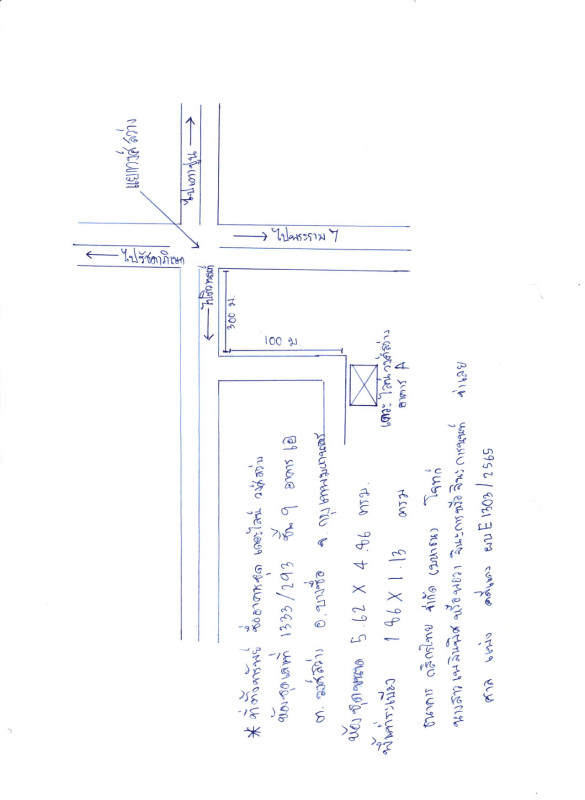 แยกวงศ์สว่าง
ไปเตาปูน →
← ไปรัชดาภิเษก
→ ไปพระราม 7
←
300 ม.
100 ม
เดอะ ไลน์ วงศ์สว่าง
อาคาร A
* ที่ตั้งทรัพย์ ชื่ออาคารชุด เดอะไลน์ วงศ์สว่าง
ห้องชุดเลขที่ 1333/293 ชั้น 9 อาคาร เอ
ต. วงศ์สว่าง อ. บางซื่อ จ. กรุงเทพมหานคร
ห้องชุดขนาด 5.62 X 4.86 ตรม.
พื้นที่ระเบียง 1.86 X 1.13 ตรม
ธนาคาร กสิกรไทย จำกัด (มหาชน) โจทก์
นางสาว หรือ จำเลย
ศาล แพ่ง คดีแดง ผบE1303/2565